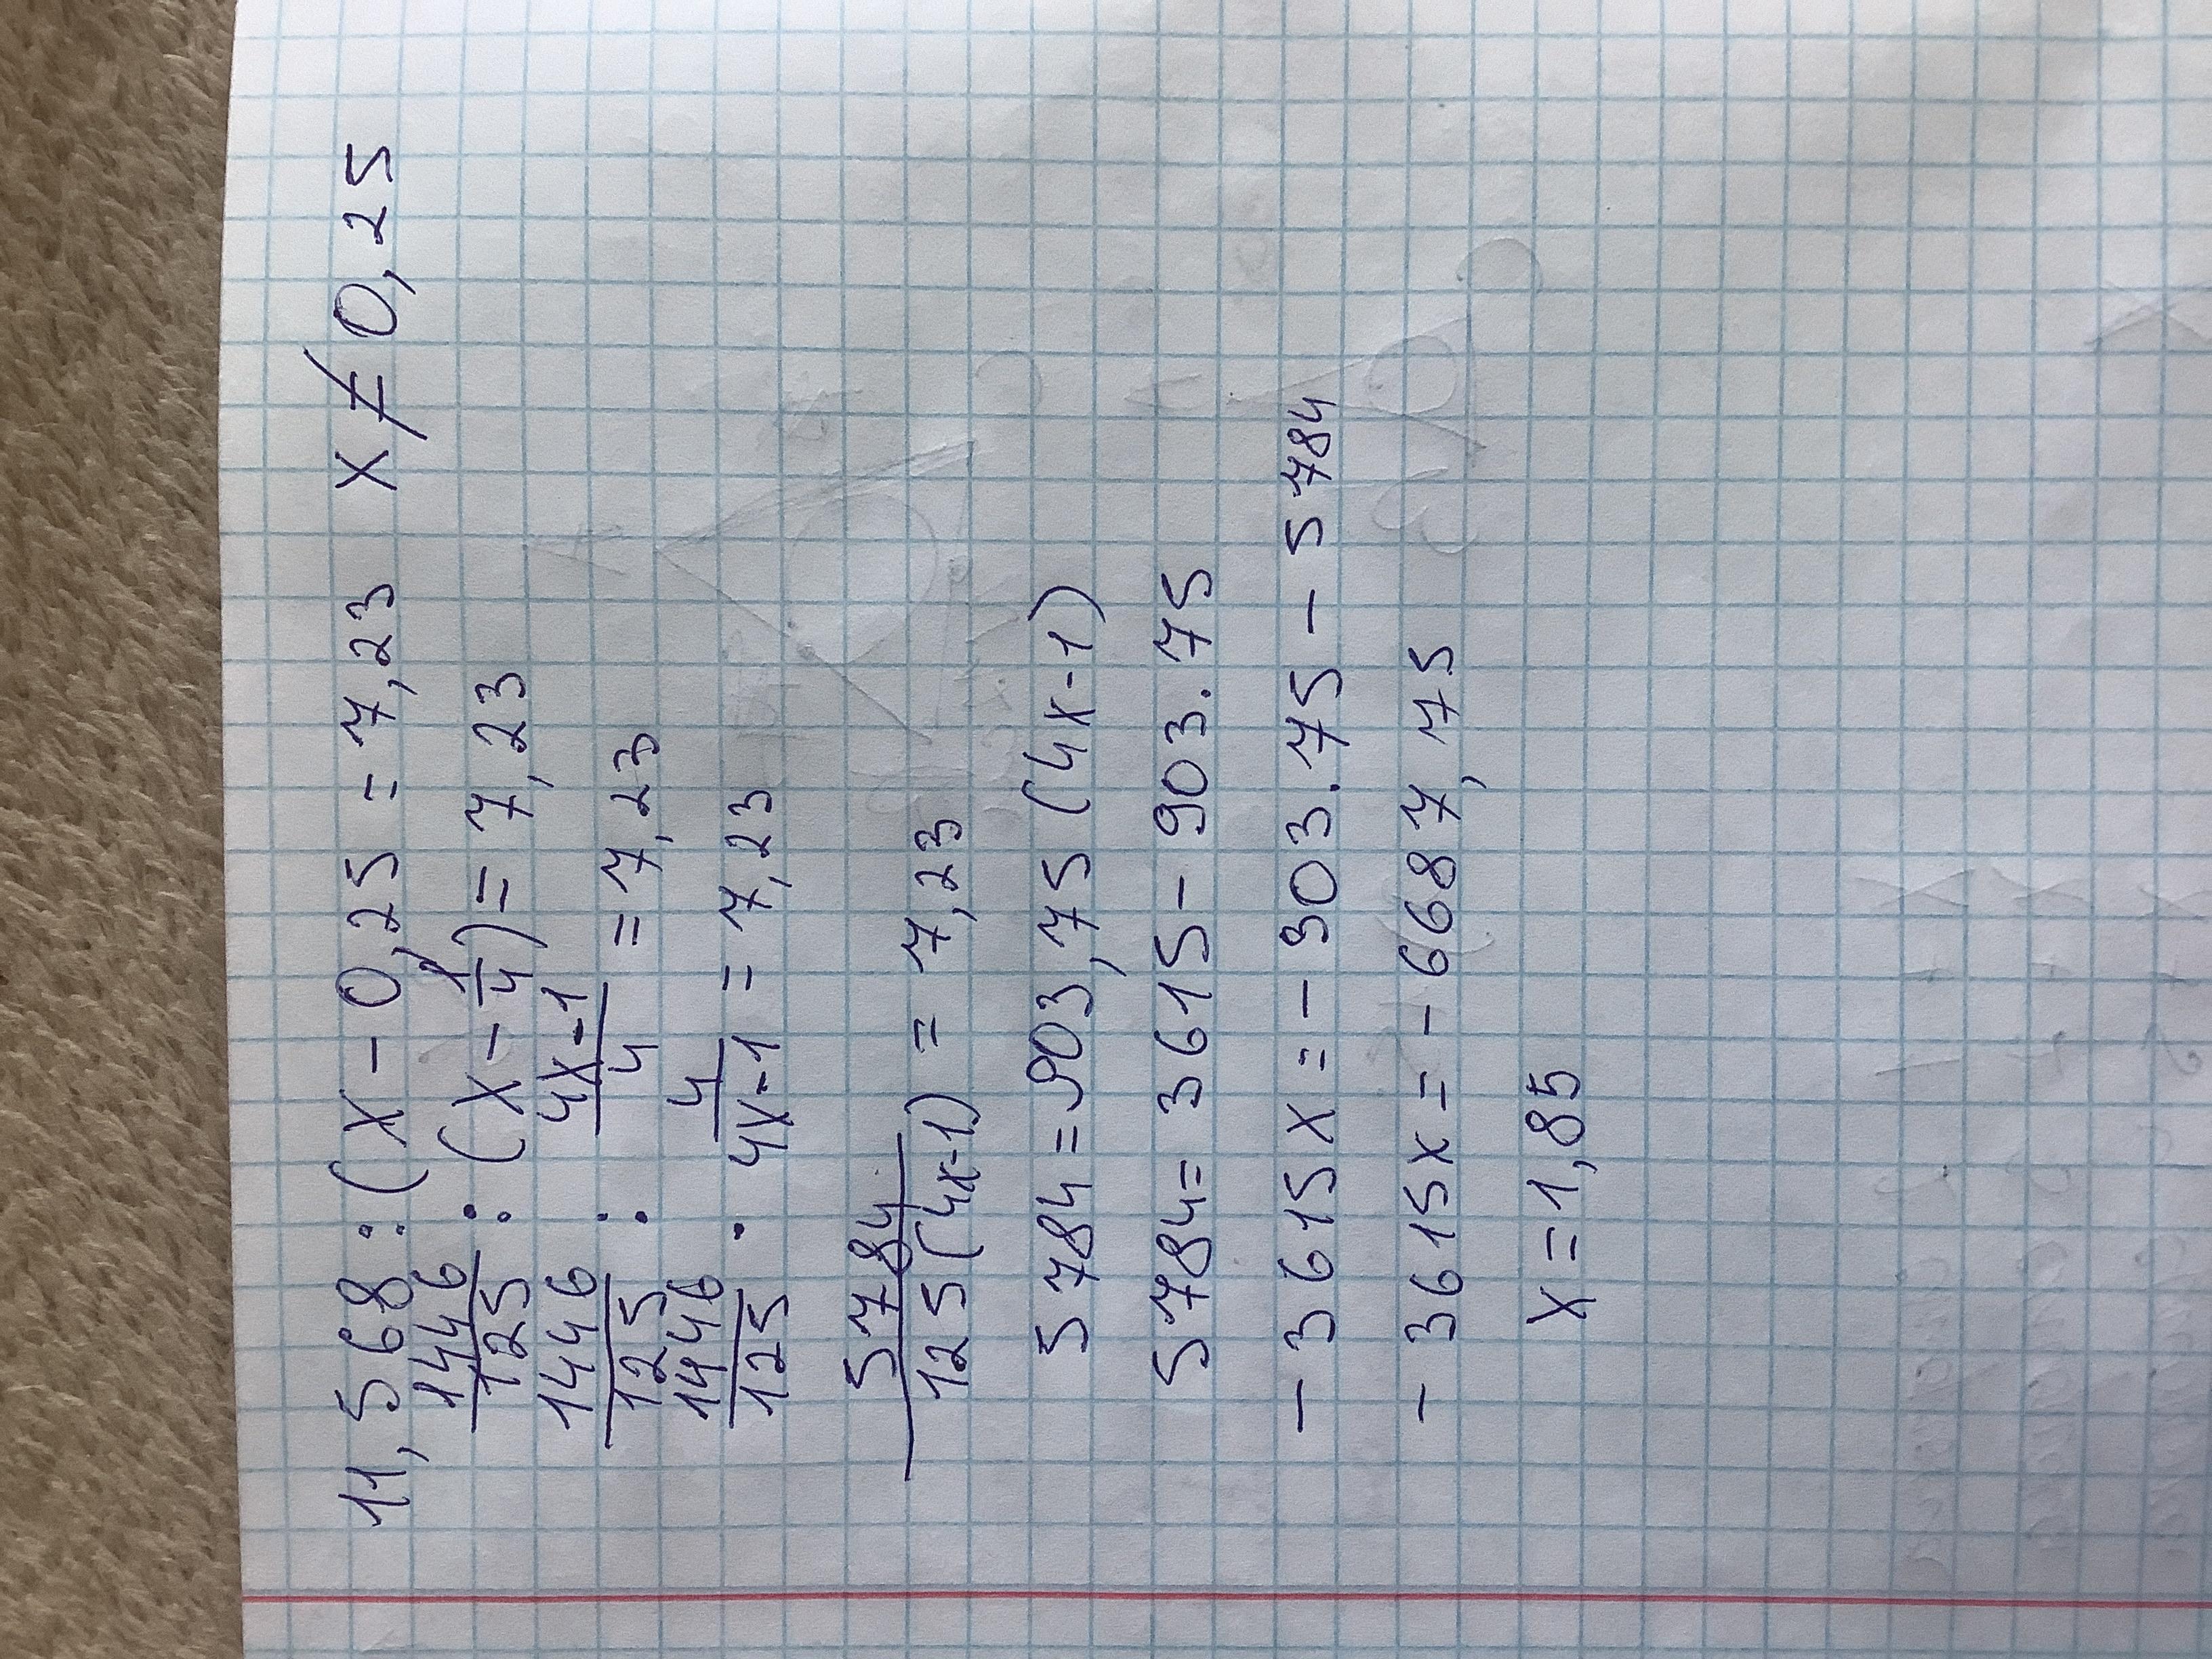 11,568 : (x - 0,25 = 7,23 x ≠ 0,25
1446/125 : (x - 1/4) = 7,23
1446/125 : 4x-1/4 = 7,23
1446/125 · 4/4x-1 = 7,23
5784/125(4x-1) = 7,23
5784 = 903,75 (4x-1)
5784 = 3615 - 903.75
- 3615x = - 303.75 - 5784
- 3615x = - 6687,75
x = 1,85